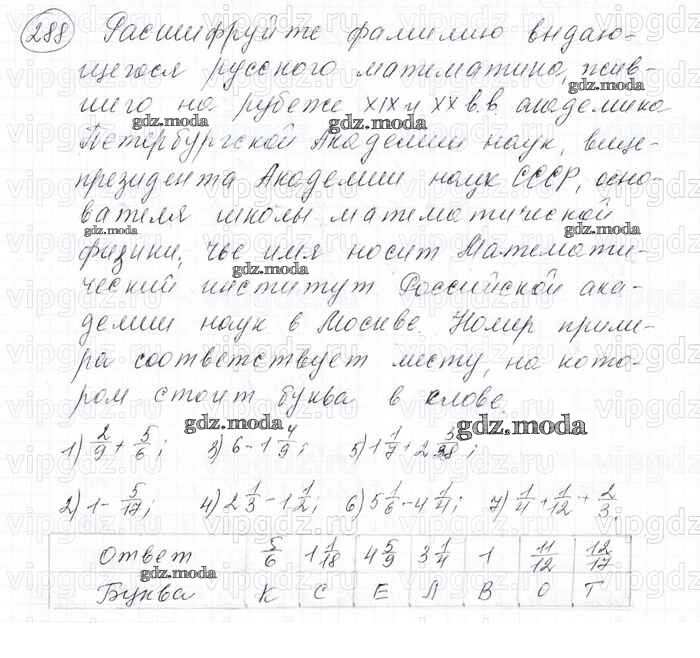 288 Расшифруйте фамилию выдаю-
щегося русского математика, жив-
шего на рубеже XIX и XX в.в. академика
Петербургской Академии наук, вице-
президента Академии наук СССР, осно-
вателя школы математической
физики, чьё имя носит Математи-
ческий институт Российской ака-
демии наук в Москве. Номер приме-
ра соответствует месту, на кото-
ром стоит буква в слове.
1) 2/9 + 5/6; 3) 6 - 1 4/9; 5) 1 1/7 + 2 3/28;
2) 1 - 5/17; 4) 2 1/3 - 1 1/2; 6) 5 1/6 - 4 1/4; 7) 1/4 + 1/12 + 2/3.
Ответ 5/6 1 1/18 4 5/9 3 1/4 1 11/12 12/17
Буква К С Е Л В О Т
gdz.moda
gdz.moda
gdz.moda
gdz.moda
gdz.moda
gdz.moda
gdz.moda
gdz.moda
gdz.moda
vipgdz.ru